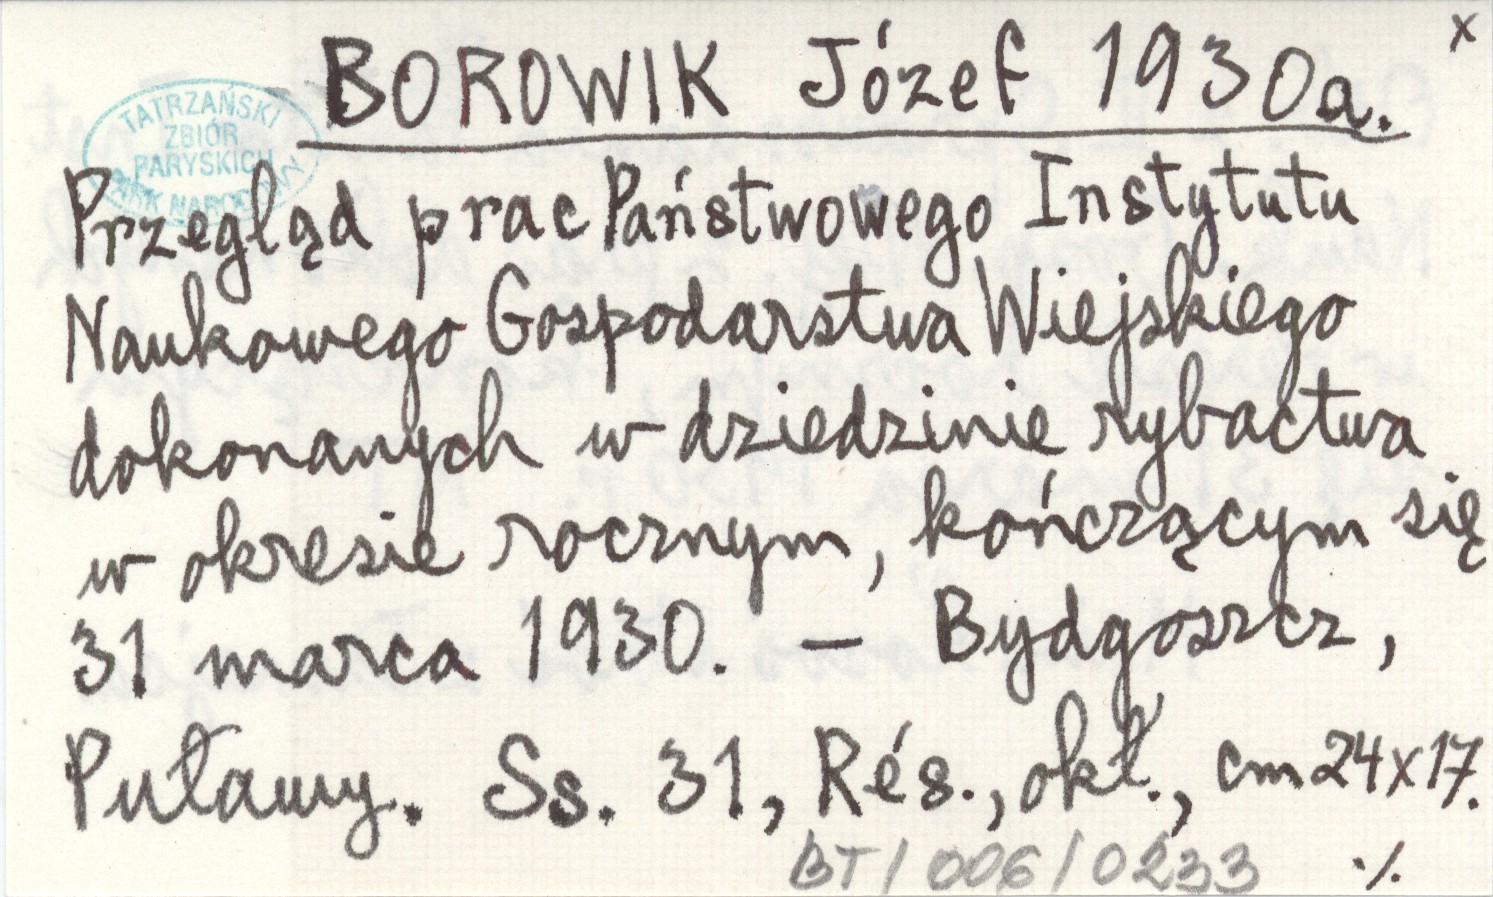 BOROWIK Józef 1930a.
x
TATRZAŃSKI
ZBIÓR
PARYSKICH
PARK NARODOWY
Przegląd prac Państwowego Instytutu
Naukowego Gospodarstwa Wiejskiego
dokonanych w dziedzinie rybactwa
w okresie rocznym, kończącym się
31 marca 1930. – Bydgoszcz,
Puławy. Ss. 31, Rés., okł., cm 24x17.
BT/006/0233
./.